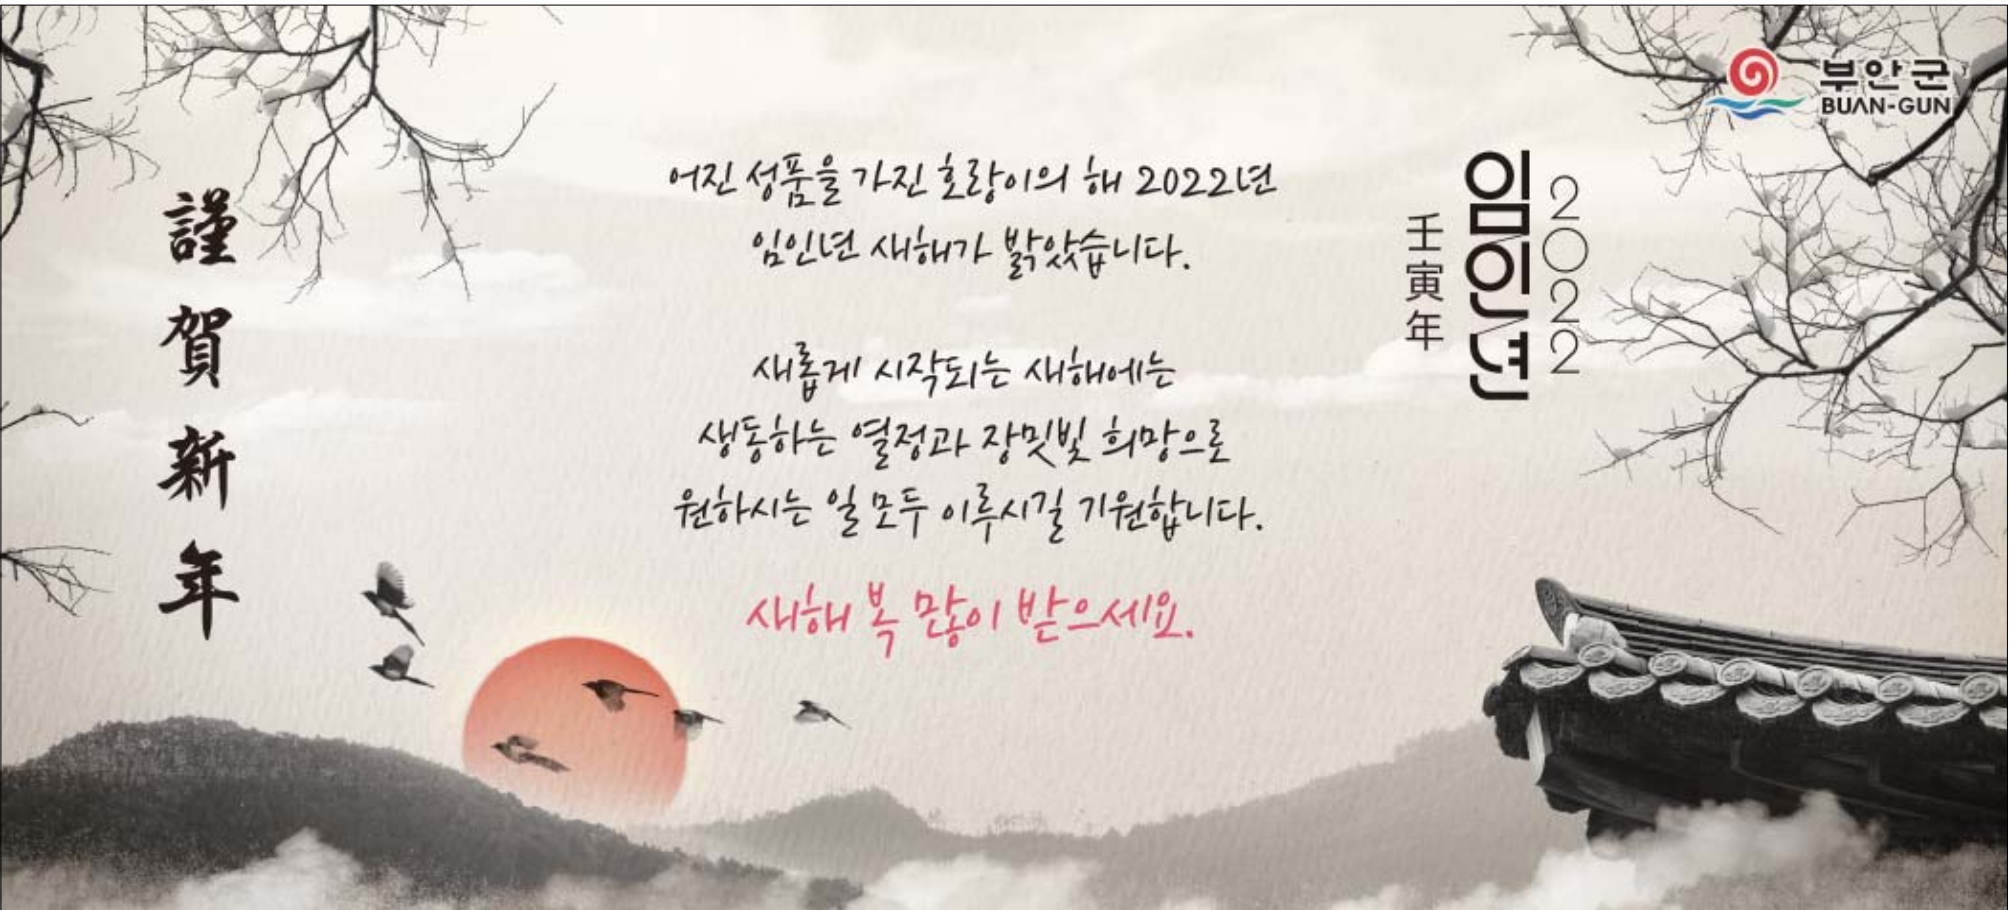 謹賀新年
어진 성품을 가진 호랑이의 해 2022년
임인년 새해가 밝았습니다.
새롭게 시작되는 새해에는
생동하는 열정과 장밋빛 희망으로
원하시는 일 모두 이루시길 기원합니다.
새해 복 많이 받으세요.
壬寅年
임인년
2022
부안군
BUAN-GUN